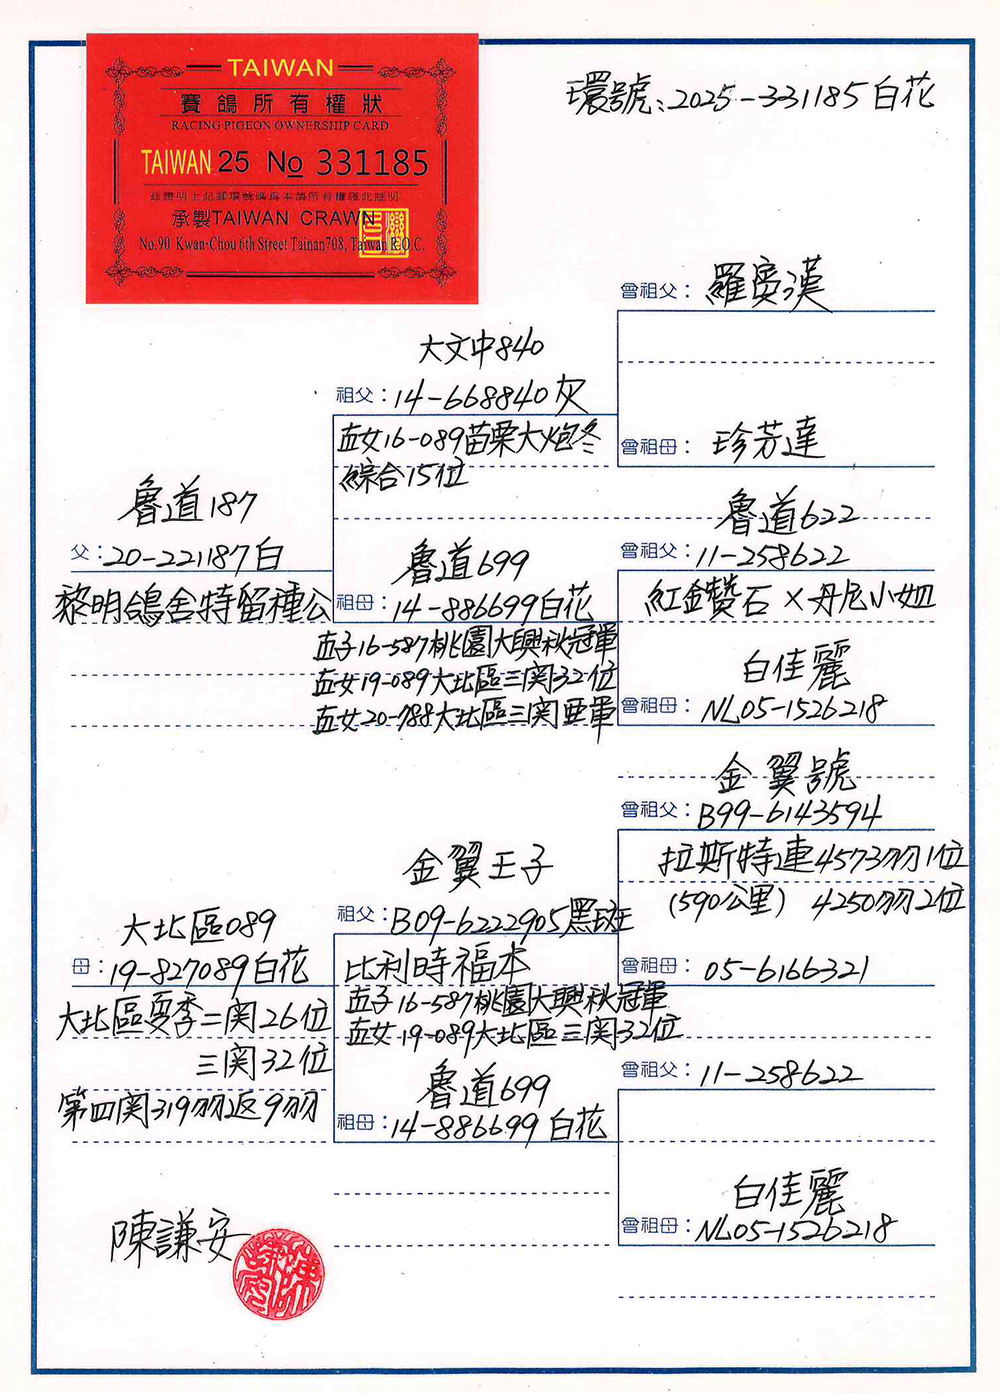 TAIWAN
賽鴿所有權狀
RACING PIGEON OWNERSHIP CARD
TAIWAN 25 No 331185
茲證明上記腳環號碼為本鴿所有權謹此証明
承製TAIWAN CRAWN
No.90 Kwan-Chou 6th Street Tainan708, Taiwan R.O.C.
環號:2025-331185白花
曾祖父:羅賓漢
大文中840
祖父:14-668840灰
血女16-089苗栗大炮冬
綜合15位
曾祖母:珍芳達
魯道187
父:20-221187白
黎明鴿舍特留種公
魯道699
祖母:14-886699白花
血子16-587桃園大興秋冠軍
血女19-089大北區三関32位
血女20-788大北區三関亜軍
魯道622
曾祖父:11-258622
紅鑽石×丹尼小姐
白佳麗
曾祖母:NL05-1526218
金翼號
曾祖父:B99-6143594
拉斯特連4573羽1位
(590公里) 4250羽2位
金翼王子
祖父:B09-6222905黑斑
比利時福本
血子16-587桃園大興秋冠軍
血女19-089大北區三関32位
曾祖母:05-6166321
大北區089
母:19-827089白花
大北區夏季二関26位
三関32位
第四関319羽返9羽
魯道699
祖母:14-886699白花
曾祖父:11-258622
白佳麗
曾祖母:NL05-1526218
陳謙安